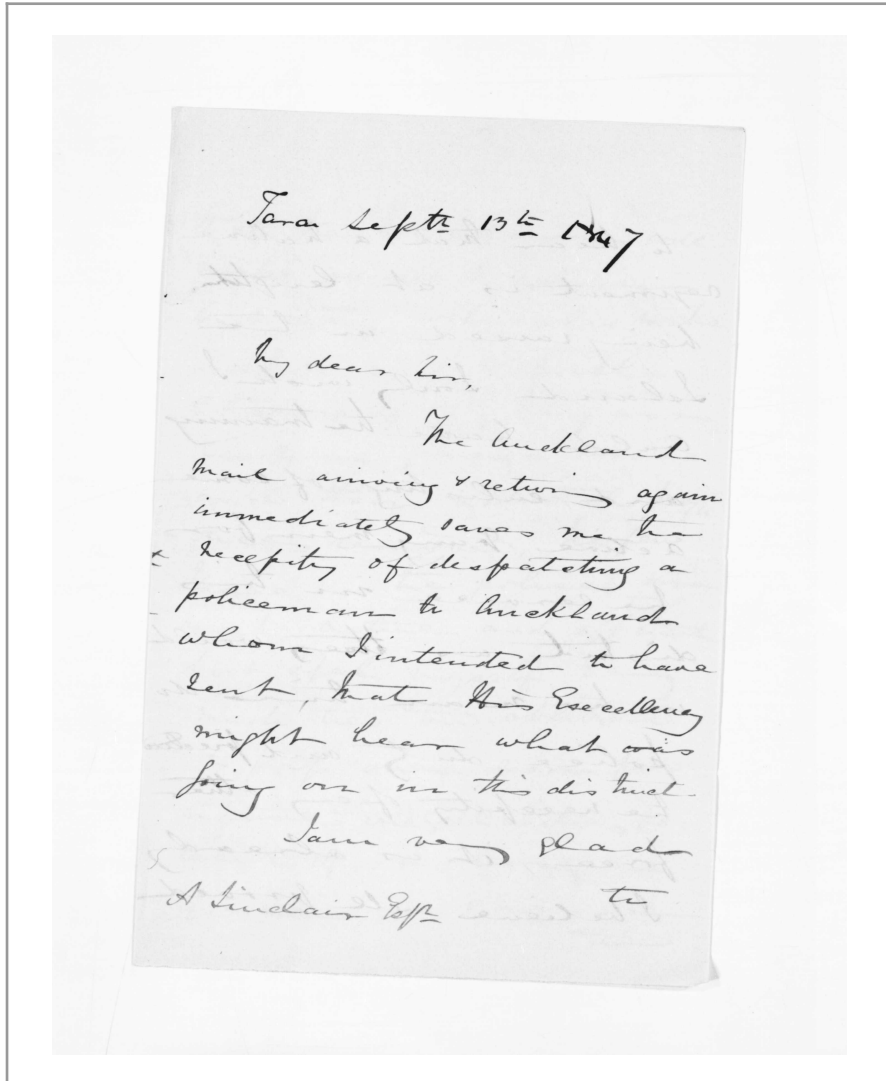 Tara Septh 13th 1847
My dear Sir,
The Auckland
Mail arriving & returing again
immediately saves me the
necessity of despatching a
policeman to Auckland
whom I intended to have
sent, that His Excellency
might hear what was
going on in this district
I am very glad
to
A Sinclair Esqre